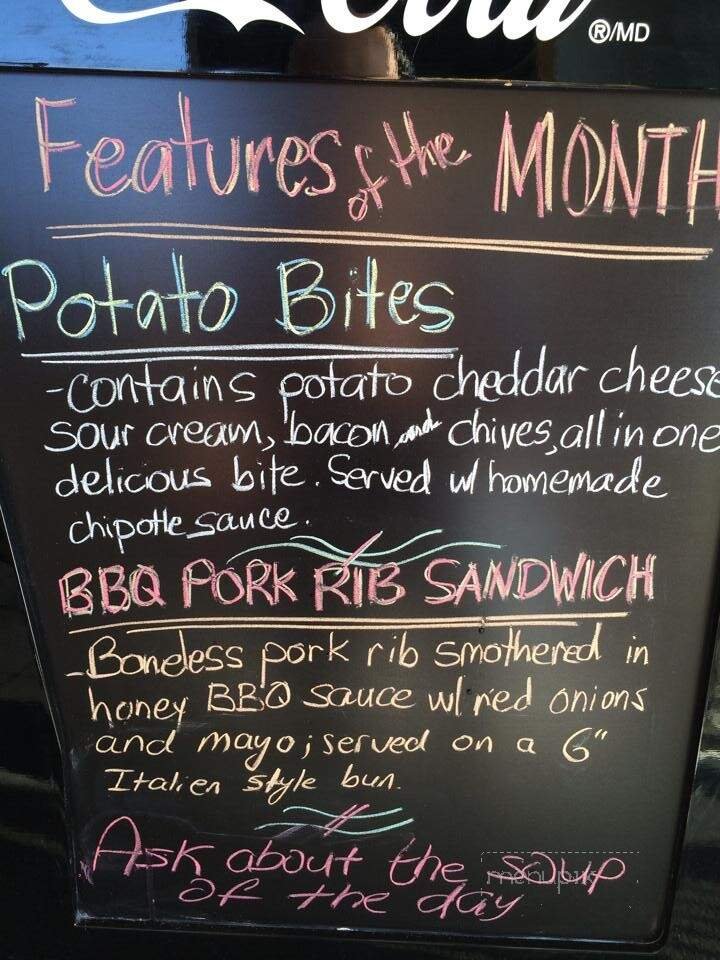 Cola
®/MD
Features of the MONTH
Potato Bites
-contains potato cheddar cheese
sour cream, bacon and chives, all in one
delicious bite. Served w/ homemade
chipotle sauce.
BBQ PORK RIB SANDWICH
-Boneless pork rib smothered in
honey BBQ sauce w/ red onions
and mayo; served on a 6"
Italien style bun.
Ask about the soup
of the day
menupix